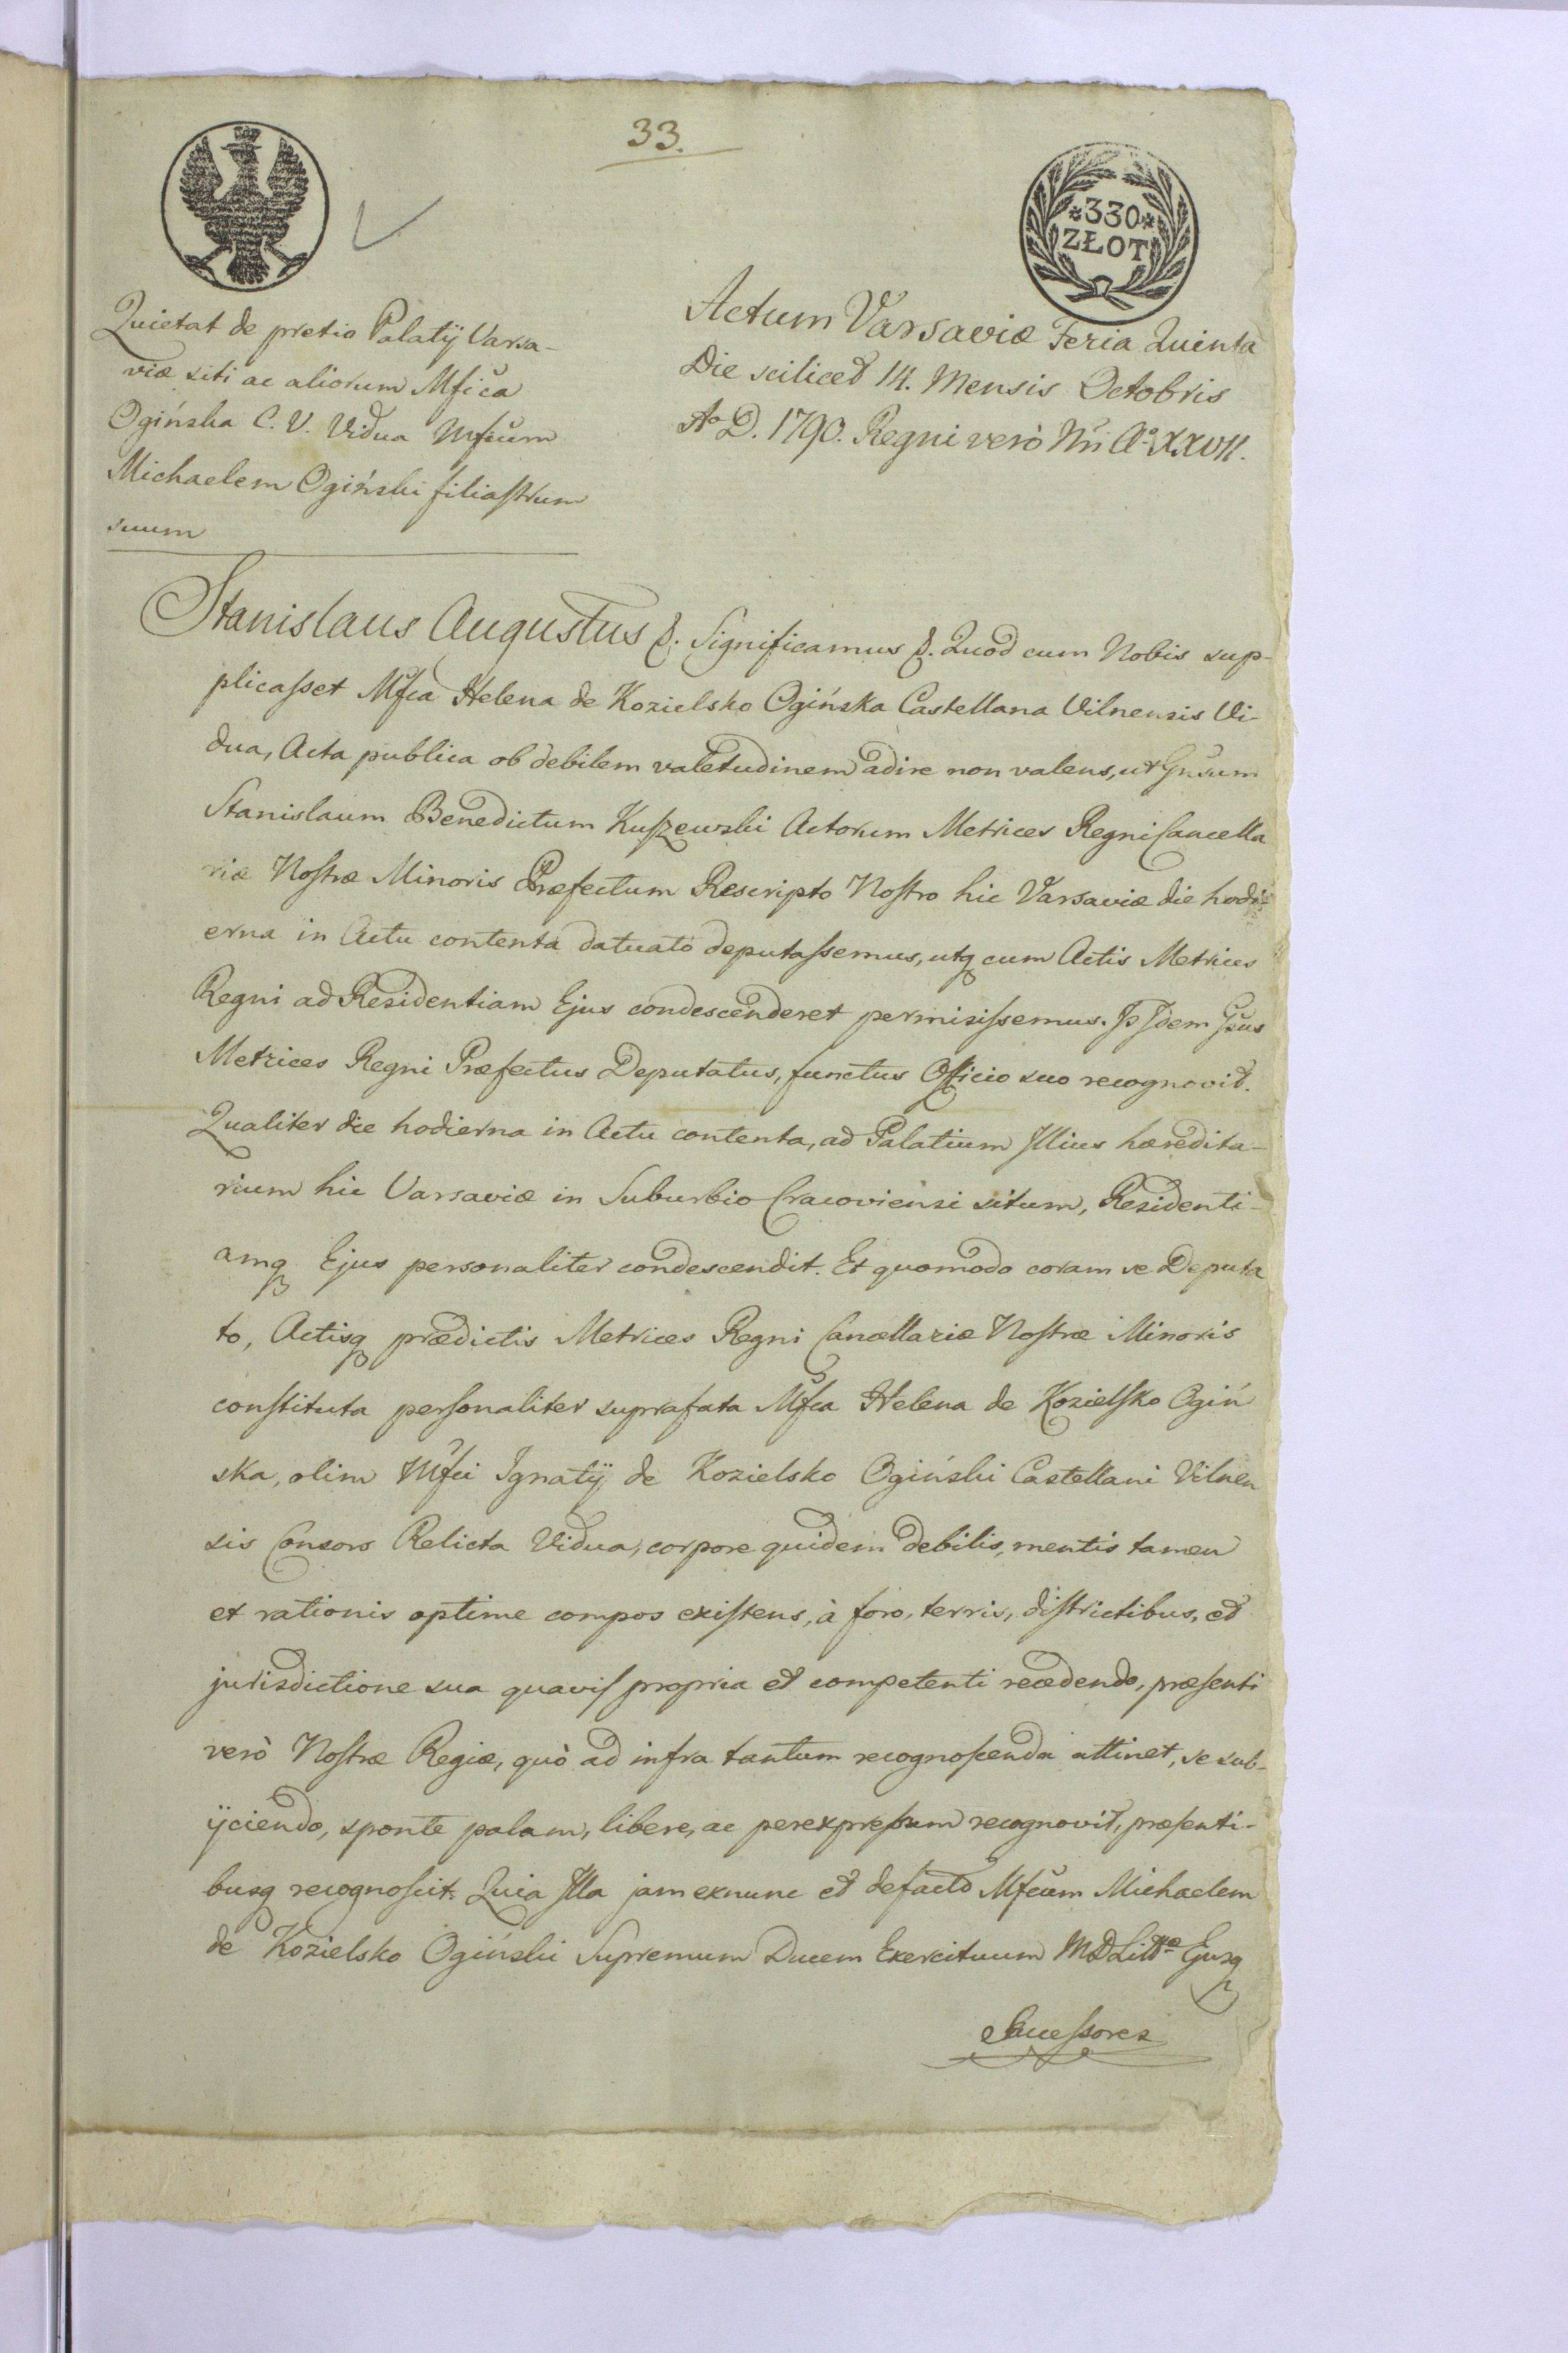 33.
*330*
ZŁOT
Quietat de pretio Palatÿ Varsa-
viæ siti ac aliorum Mfica
Ogińska C. V. Vidua Mfcum
Michaelem Ogiński filiastrum
suum
Actum Varsaviæ Feria Quinta
Die scilicet 14. Mensis Octobris
Ao D. 1790. Regni verò Nri Ao XXVII.
Stanislaus Augustus &. Significamus &. Quod cum Nobis sup-
plicaſset Mfca Helena de Kozielsko Ogińska Castellana Vilnensis Vi-
dua, Acta publica ob debilem valetudinem adire non valens, ut Gnsum
Stanislaum Benedictum Kuſzewski Actorum Metrices Regni Cancella
riæ Noſtræ Minoris Præfectum Rescripto Noſtro hic Varsaviæ die hodi-
erna in Actu contenta datuato deputaſsemus, utq cum Actis Metrices
Regni ad Residentiam Ejus condescenderet permisiſsemus. Idem Gsus
Metrices Regni Præfectus Deputatus, functus Officio suo recognovit.
Qualiter die hodierna in Actu contenta, ad Palatium Illius hæredita-
rium hic Varsaviæ in Suburbio Cracoviensi situm, Residenti-
amq Ejus personaliter condescendit. Et quomodo coram se Deputa
to, Actisq prædictis Metrices Regni Cancellariæ Noſtræ Minoris
conſtituta perſonaliter suprafata Mfca Helena de Kozielſko Ogiń
ska, olim Mfci Ignatÿ de Kozielsko Ogiński Castellani Vilnen
sis Consors Relicta Vidua, corpore quidem debilis, mentis tamen
et rationis optime compos exiſtens, à foro, terris, diſtrictibus, et
jurisdictione sua quaviſ propria et competenti recedendo, præſenti
verò Noſtræ Regiæ, quò ad infra tantum recognoſcenda attinet, se sub-
ÿciendo, sponte palam, libere, ac perexpreſsum recognovit, præſenti-
busq recognoſcit. Quia Illa jam exnunc et defacto Mfcum Michaelem
de Kozielsko Ogiński Supremum Ducem Exercituum MDLittæ Ejusq
Succeſsores